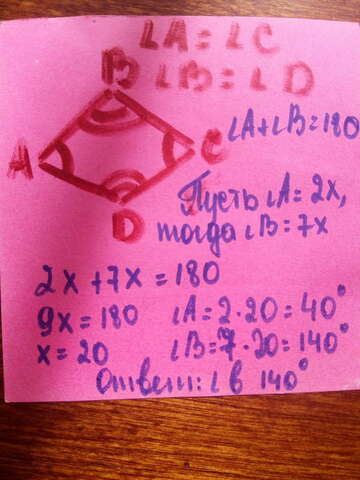 ∠A = ∠C
∠B = ∠D
B
A
C
D
∠A+∠B=180
Пусть ∠A = 2x,
тогда ∠B = 7x
2x + 7x = 180
9x = 180 ∠A = 2 · 20 = 40°
x = 20 ∠B = 7 · 20 = 140°
Ответ: ∠B 140°